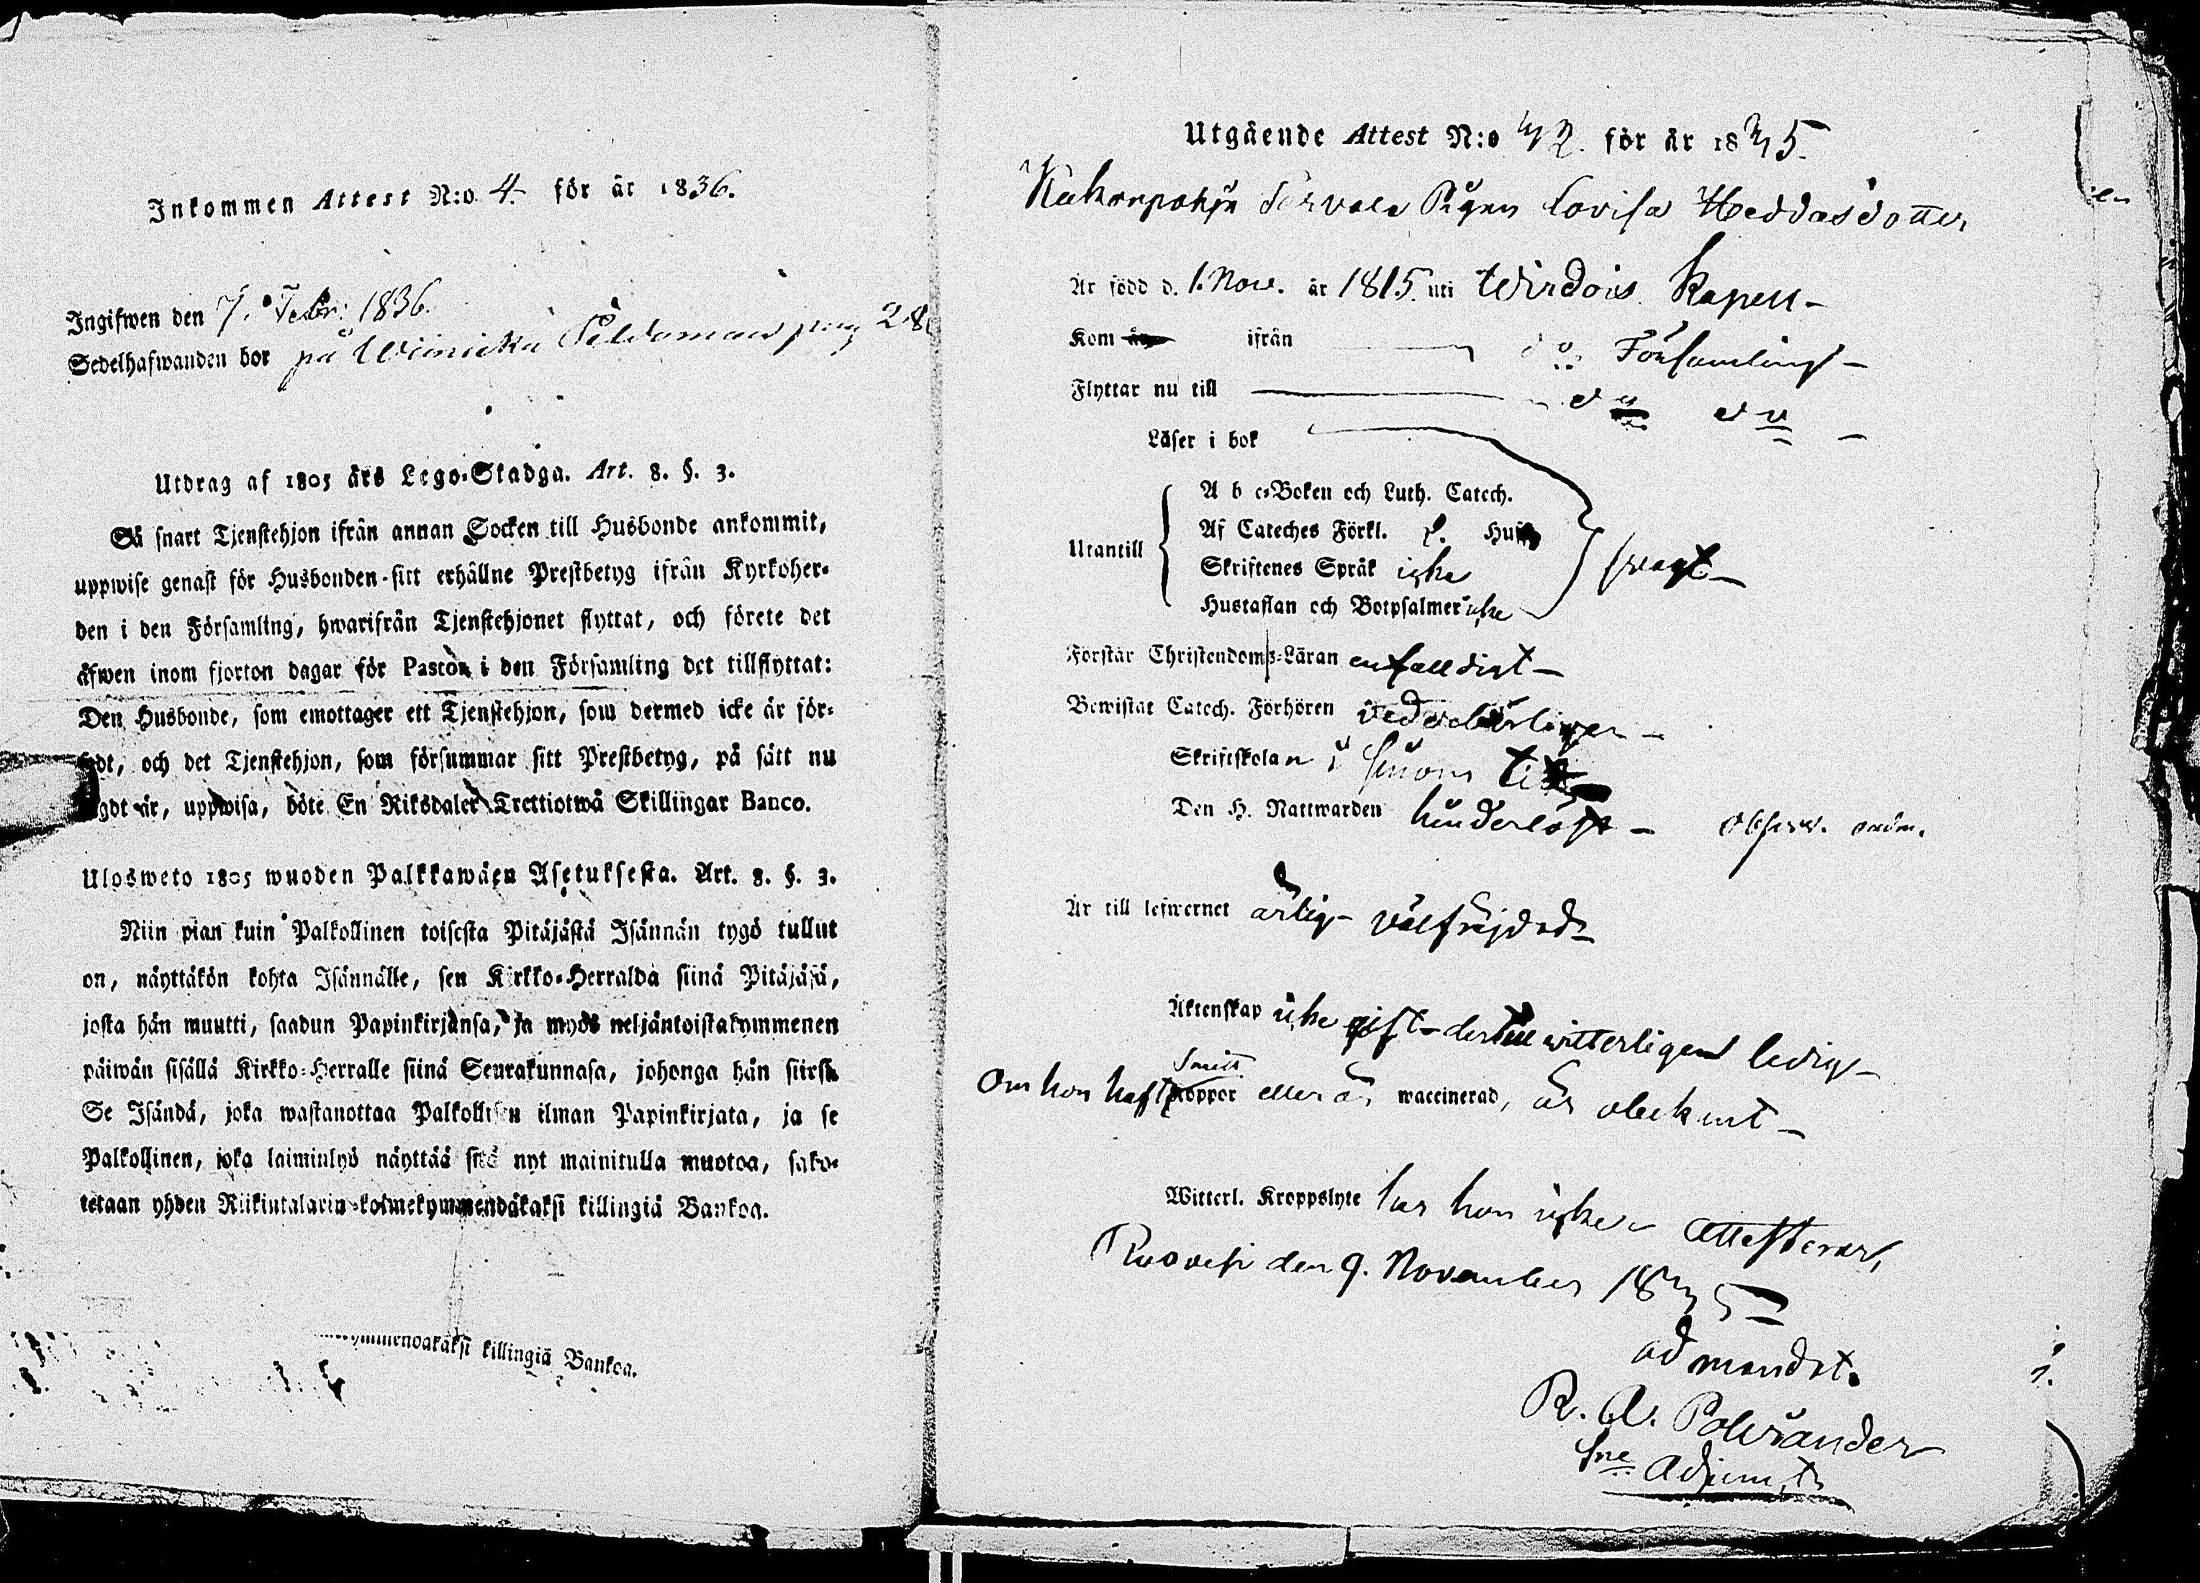 Inkommen Attest N:o 4. för år 1836.
Ingifwen den 7. Febr: 1836.
Sedelhafwanden bor på
Utdrag af 1805 års Lego-Stadga. Art. 8. §. 3.
Så snart Tjenstehjon ifrån annan Socken till Husbonde ankommit,
uppwise genast för Husbonden sitt erhållne Prestbetyg ifrån Kyrkoher-
den i den Församling, hwarifrån Tjenstehjonet flyttat, och förete det
äfwen inom fjorton dagar för Pastor i den Församling det tillflyttat:
Den Husbonde, som emottager ett Tjenstehjon, som dermed icke är för-
och det Tjenstehjon, som försummar sitt Prestbetyg, på sätt nu
är, uppwisa, böte En Riksdaler Trettiotwå Skillingar Banco.
Ulosweto 1805 wuoden Palkkawäen Asetuksesta. Art. 8. §. 3.
Niin pian kuin Palkollinen toisesta Pitäjästä Isännän tygö tullut
on, näyttäkön kohta Isännälle, sen Kirkko-Herralda siinä Pitäjäsä,
josta hän muutti, saadun Papinkirjansa, ja myös neljäntoistakymmenen
päiwän sisällä Kirkko-Herralle siinä Seurakunnasa, johonga hän siirsä
Se Isändä, joka wastanottaa Palkollisen ilman Papinkirjata, ja se
Palkollinen, joka laiminlyö näyttää sitä nyt mainitulla muotoa, sako-
tetaan yhden Riikintalarin kolmekymmendäkaksi killingiä Bankoa.
killingiä Bankoa.
Utgående Attest N:o 42. för år 1835.
Pigan Lovisa Heddasdotter
Är född d. 1. Nov. år 1815. uti Wirdois Kapell-
Kom ifrån do Församling-
Flyttar nu till do do -
Läser i bok
Utantill
A b c-Boken och Luth. Catech.
Af Cateches Förkl.
Skriftenes Språk icke
Hustaflan och Botpsalmer icke
svagt-
Förstår Christendoms-Läran enfalldigt-
Bewistat Catech. Förhören vederbörligen-
Skriftskolan i sinom tid
Den H. Nattwarden hinderlöst-
Är till lefwernet ärlig- välfrejdad-
Äktenskap icke gift- dertill witterligen ledig-
Om hon haft koppor eller är waccinerad, är obekant-
Witterl. Kroppslyte har hon icke attesterar,
Ruovesi den 9. November 1835
ad mandat.
R. A. Polviander
Adjunct.